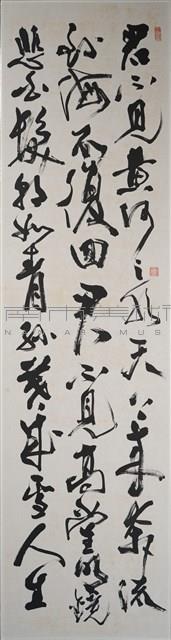 君不見黃河之水天上來奔流
到海不復回君不見高堂明鏡
悲白髮朝如青絲暮成雪人生
南市美術